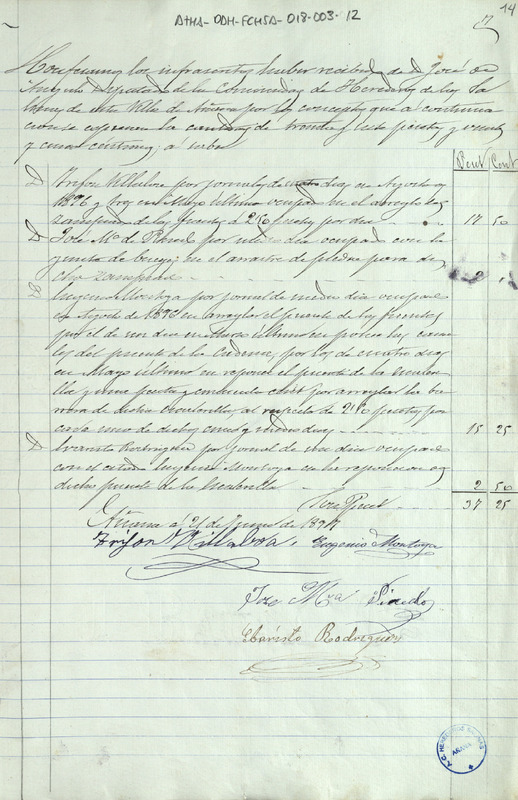 ATHA-DDH-FCHSA-018-003-12
14
Confesamos los infrascritos haber recibido de D. José de
Diputado de la Comunidad de Herederos de las Sa
linas de esta Villa de Añana por los conceptos que a continua
cion se expresan la cantidad de treinta y siete pesetas y veinte
y cinco céntimos; a saber
Peset Cent
D. Trifon Villalva por jornales de cuatro dias en Agosto de
1896 y tres en Mayo último ocupado en el arreglo de
zampeado de las fuentes a 2'50 pesetas por dia
17 50
D. José Ma. de por medio dia ocupado con la
yunta de bueyes en el arrastre de piedra para
dho zampeado
2
D. Eugenio Montoya por jornal de medio dia ocupado
en Agosto de 1896 en arreglar el puente de las fuentes
por el de un dia en Marzo último en
del puente de la por los de cuatro dias
en Mayo último en reponer el puente de la
y una peseta y cincuenta cents por arreglar la ba
rrera de dicha al respecto de 2'50 pesetas por
cada uno de dichos cinco y medio dias
15 25
D. Evaristo Rodriguez por jornal de un dia ocupado
con el citado Eugenio Montoya en la reposicion del
dicho puente de la
2 50
37 25
Añana á 21 de Junio de 1897
Trifon Villalva
Eugenio Montoya
Jose Mra
Ebaristo Rodriguez
AÑANA